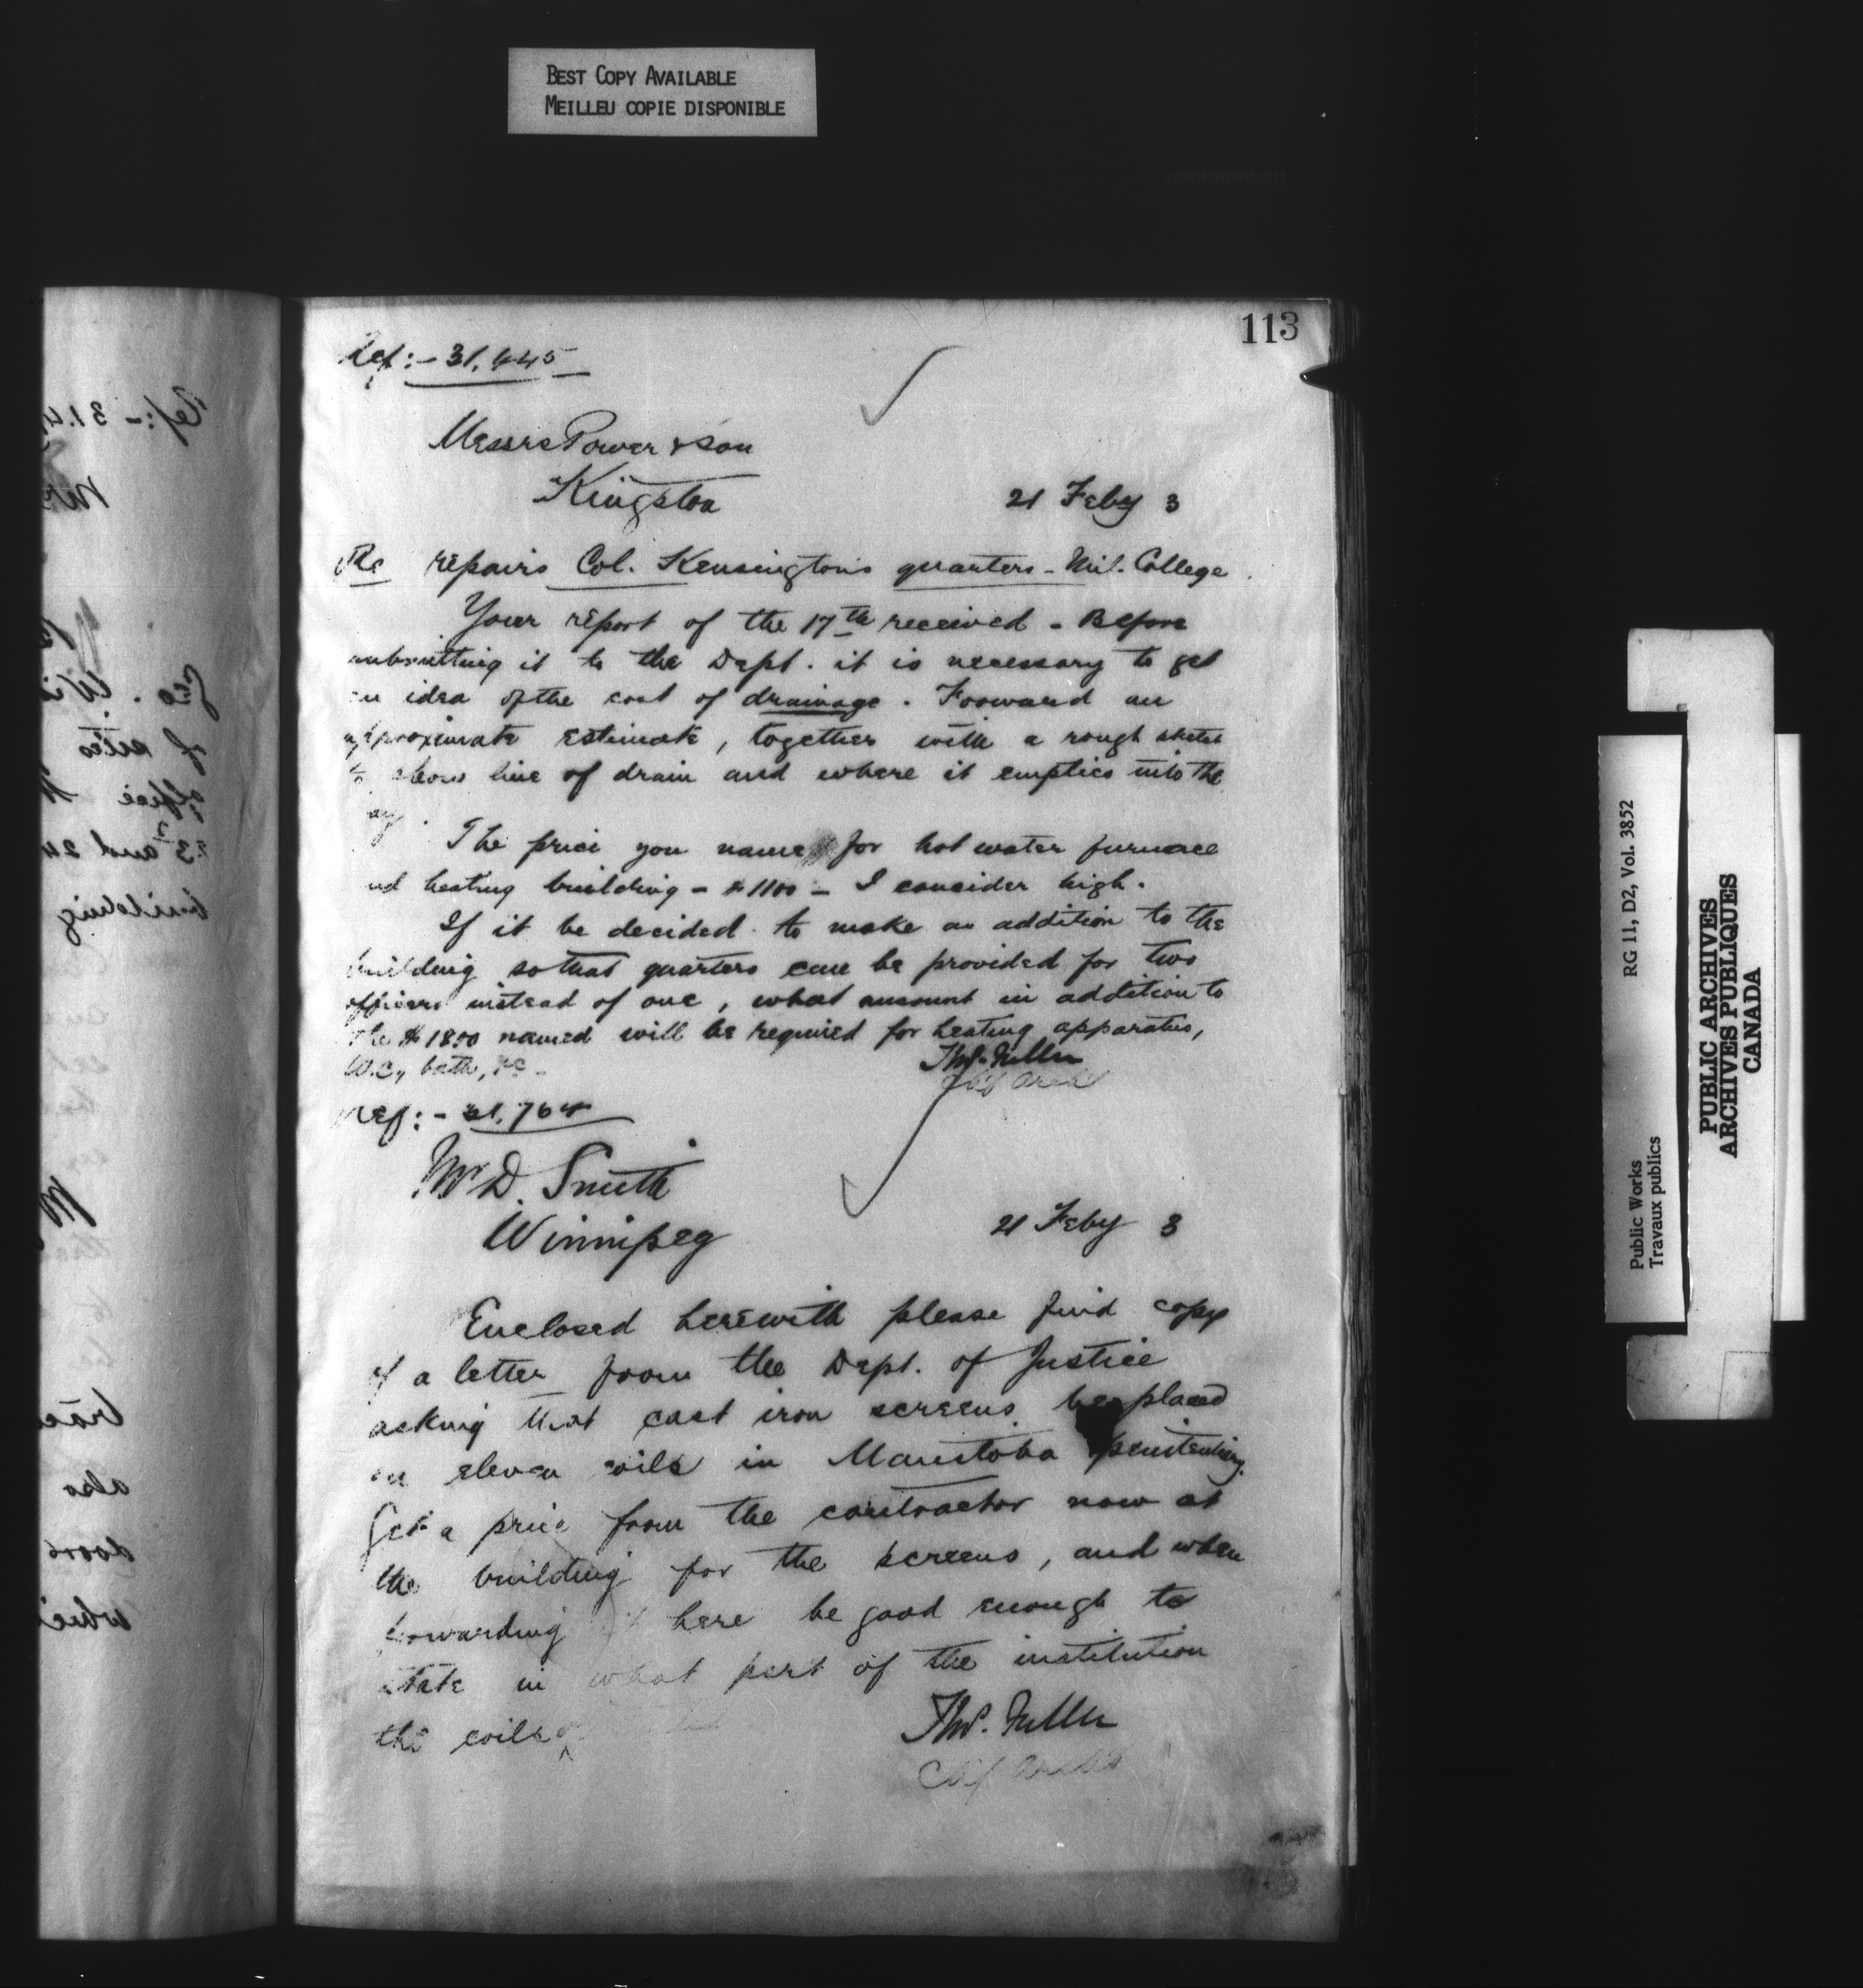 BEST COPY AVAILABLE
MEILLEU COPIE DISPONIBLE
113
Ref:- 31,445
Messrs Power & Son
Kingston
21 Feby 3
Re repairs Col. Kensington's quarters - Mil. College
Your report of the 17th received - Before
submitting it to the Dept. it is necessary to get
an idea of the cost of drainage. Forward an
approximate estimate, together with a rough sketch
to show line of drain and where it empties into the
bay.
The price you name for hot water furnace
and heating building - $1100 - I consider high.
If it be decided to make an addition to the
building so that quarters can be provided for two
officers instead of one, what amount in addition to
the $1800 named will be required for heating apparatus,
W.C., bath, &c -
Thos. Fuller
Chf Archt
Ref:- 31,764
Mr D. Smith
Winnipeg
21 Feby 3
Enclosed herewith please find copy
of a letter from the Dept. of Justice
asking that cast iron screens be placed
on eleven coils in Manitoba penitentiary.
Get a price from the contractor now at
the building for the screens, and when
forwarding it here be good enough to
state in what part of the institution
the coils
Thos. Fuller
Chf Archt
RG 11, D2, Vol. 3852
Public Works
Travaux publics
PUBLIC ARCHIVES
ARCHIVES PUBLIQUES
CANADA